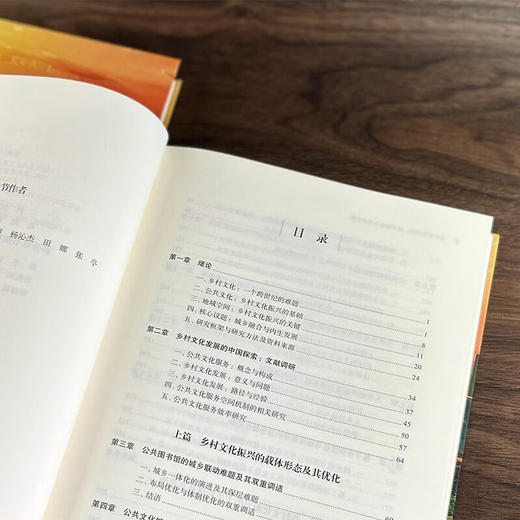 书作者
杨沁杰 田娜 张亭
目 录
第一章 绪论 1
一、乡村文化：一个跨世纪的难题 1
二、公共文化：乡村文化振兴的基础 8
三、地域空间：乡村文化振兴的关键 11
四、核心议题：城乡融合与内生发展 20
五、研究框架与研究方法及资料来源 24
第二章 乡村文化发展的中国探索：文献调研 34
一、公共文化服务：概念与构成 37
二、乡村文化发展：意义与问题 45
三、乡村文化发展：路径与经验 50
四、公共文化服务空间机制的相关研究 57
五、公共文化服务效率研究 64
上篇 乡村文化振兴的载体形态及其优化
第三章 公共图书馆的城乡联动难题及其双重调适
一、城乡一体化的演进及其深层难题
二、布局优化与体制优化的双重调适
三、结语
第四章 公共文化